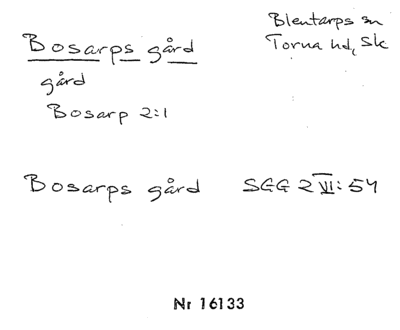 Bosarps gård
Blentarps sn
Torna hd, Sk
gård
Bosarp 2:1
Bosarps gård SGG 2 VI: 54
Nr 16133